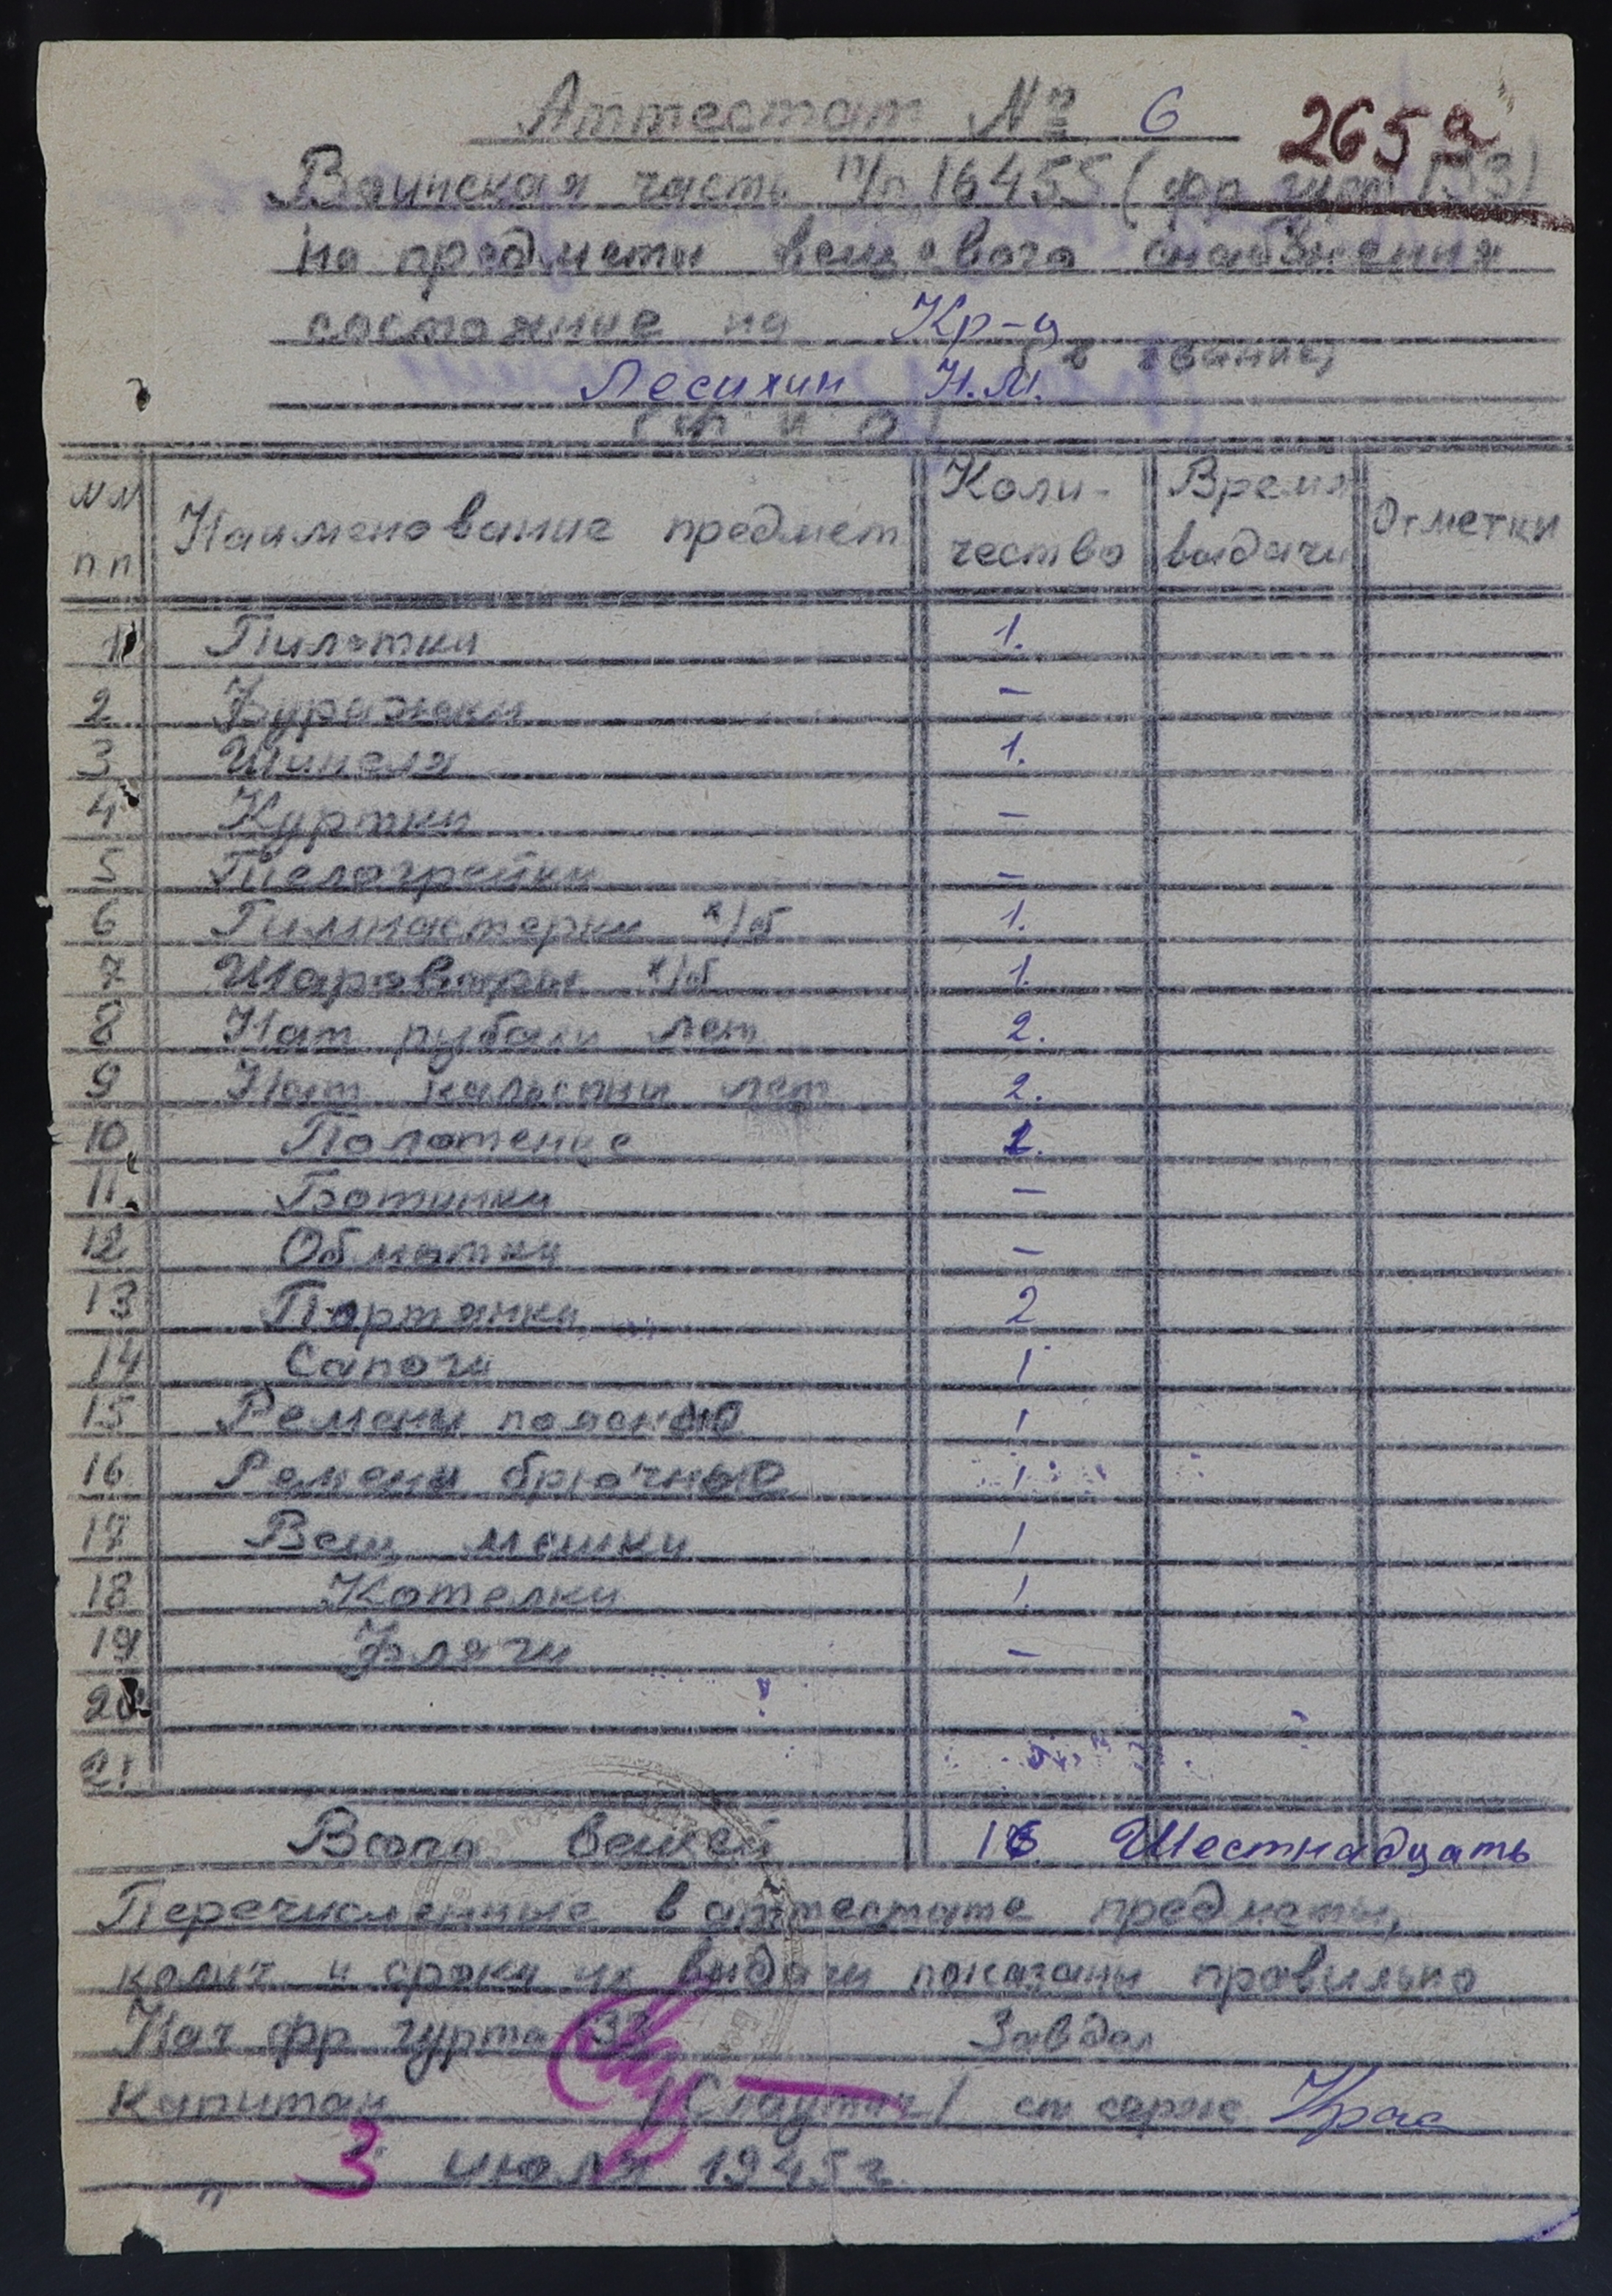 Аттестат № 6
265а
Воинская часть п/п 16455 (фр гурт 133)
на предметы вещевого снабжения
состояние на Кр-ц
(в звание)
Лесихин Н.М.
(Ф И О)
№ №
п п
Наименование предмет
Коли-
чество
Время
выдачи
Отметки
1 Пилотки 1.
2 Фуражки –
3 Шинеля 1.
4 Куртки –
5 Телогрейки –
6 Гимнастерки х/б 1.
7 Шаровары х/б 1.
8 Нат рубахи лет 2.
9 Нат кальсоны лет 2.
10 Полотенце 1.
11 Ботинки –
12 Обмотки –
13 Портянки 2
14 Сапоги 1
15 Ремени поясные 1
16 Ремени брючные 1
17 Вещ мешки 1
18 Котелки 1
19 Фляги –
20
21
Всего вещей 16 Шестнадцать
Перечисленные в аттестате предметы,
колич и сроки их выдачи показаны правильно
Нач фр гурта 133 Завдел
Капитан ст серж
" 3 июля 1945 г.